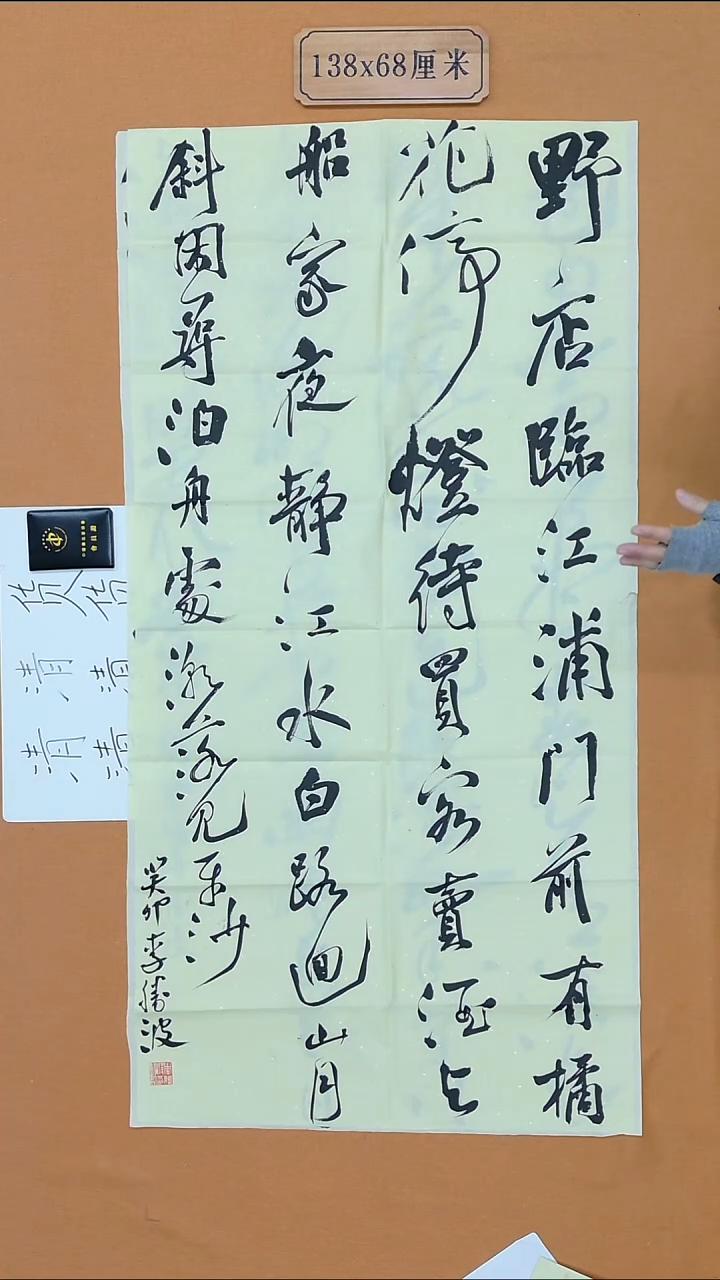 138x68厘米
野店臨江浦门前有橘
花停燈待買客賣酒与
船家夜静江水白路迴山月
斜閑尋泊舟處潮落見平沙
癸卯李勝波
清 清
清 清